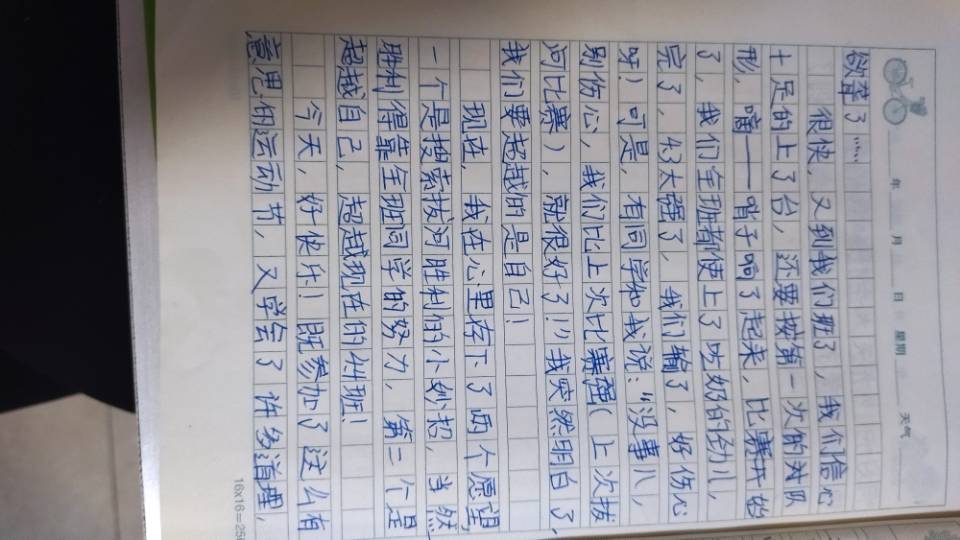 年 月 日 星期 天气
欲聋了……
很快，又到我们班了，我们信心
十足的上了台，还要按第一次的对队
形，嘀——哨子响了起来，比赛开始
了，我们全班都使上了吃奶的劲儿，
完了，43太强了，我们输了，好伤心
呀！可是，有同学和我说：“没事儿，
别伤心，我们比上次比赛强（上次拔
河比赛），就很好了！”我突然明白了，
我们要超越的是自己！
现在，我在心里存下了两个愿望，
一个是搜索拔河胜利的小妙招，当然
胜利得靠全班同学的努力，第二个是
超越自己，超越现在的4班！
今天，好快乐！既参加了这么有
意思的运动节，又学会了许多道理，
16x16=256